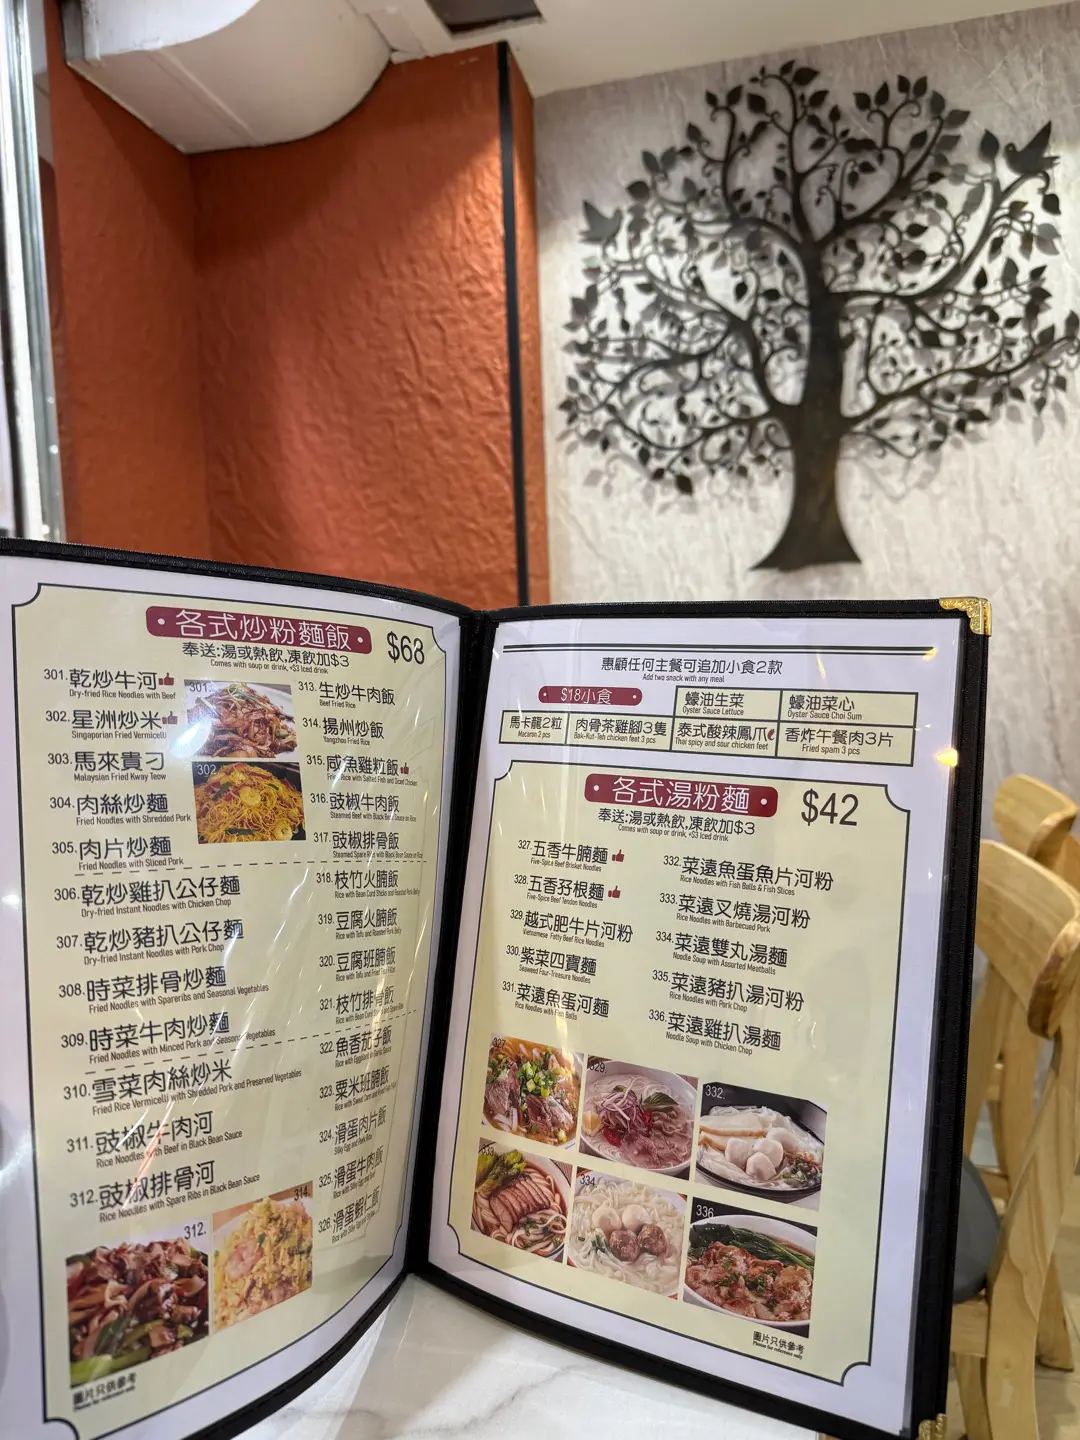 各式炒粉麵飯
$68
奉送:湯或熱飲,凍飲加$3
Comes with soup or drink, +$3 Iced drink
301.乾炒牛河
Dry-fried Rice Noodles with Beef
302.星洲炒米
Singaporian Fried Vermicelli
303.馬來貴刁
Malaysian Fried Kway Teow
304.肉絲炒麵
Fried Noodles with Shredded Pork
305.肉片炒麵
Fried Noodles with Sliced Pork
306.乾炒雞扒公仔麵
Dry-fried Instant Noodles with Chicken Chop
307.乾炒豬扒公仔麵
Dry-fried Instant Noodles with Pork Chop
308.時菜排骨炒麵
Fried Noodles with Spareribs and Seasonal Vegetables
309.時菜牛肉炒麵
Fried Noodles with Minced Pork and Seasonal Vegetables
310.雪菜肉絲炒米
Fried Rice Vermicelli with Shredded Pork and Preserved Vegetables
311.豉椒牛肉河
Rice Noodles with Beef in Black Bean Sauce
312.豉椒排骨河
Rice Noodles with Spare Ribs in Black Bean Sauce
301.
302.
312.
314.
圖片只供參考
Photos for reference only
313.生炒牛肉飯
Beef Fried Rice
314.揚州炒飯
Yangzhou Fried Rice
315.咸魚雞粒飯
Fried Rice with Salted Fish and Diced Chicken
316.豉椒牛肉飯
Steamed Beef with Black Bean Sauce on Rice
317.豉椒排骨飯
Steamed Spare Ribs with Black Bean Sauce on Rice
318.枝竹火腩飯
Rice with Bean Curd Sticks and Roasted Pork Belly
319.豆腐火腩飯
Rice with Tofu and Roasted Pork Belly
320.豆腐班腩飯
Rice with Tofu and Fried
321.枝竹排骨飯
Rice with Bean Curd
322.魚香茄子飯
Rice with Eggplant
323.粟米班腩飯
Rice with Sweet Corn and
324.滑蛋肉片飯
Silky Egg and Pork Rice
325.滑蛋牛肉飯
Rice with Silky Egg and
326.滑蛋蝦仁飯
Rice with Silky Egg and
惠顧任何主餐可追加小食2款
Add two snack with any meal
$18小食
蠔油生菜
Oyster Sauce Lettuce
蠔油菜心
Oyster Sauce Choi Sum
馬卡龍2粒
Macaron 2 pcs
肉骨茶雞腳3隻
Bak-Kut-Teh chicken feet 3 pcs
泰式酸辣鳳爪
Thai spicy and sour chicken feet
香炸午餐肉3片
Fried spam 3 pcs
各式湯粉麵
$42
奉送:湯或熱飲,凍飲加$3
Comes with soup or drink, +$3 Iced drink
327.五香牛腩麵
Five-Spice Beef Brisket Noodles
328.五香孖根麵
Five-Spice Beef Tendon Noodles
329.越式肥牛片河粉
Vietnamese Fatty Beef Rice Noodles
330.紫菜四寶麵
Seaweed Four-Treasure Noodles
331.菜遠魚蛋河麵
Rice Noodles with Fish Balls
332.菜遠魚蛋魚片河粉
Rice Noodles with Fish Balls & Fish Slices
333.菜遠叉燒湯河粉
Rice Noodles with Barbecued Pork
334.菜遠雙丸湯麵
Noodle Soup with Assorted Meatballs
335.菜遠豬扒湯河粉
Rice Noodles with Pork Chop
336.菜遠雞扒湯麵
Noodle Soup with Chicken Chop
327.
329.
332.
333.
334.
336.
圖片只供參考
Photos for reference only